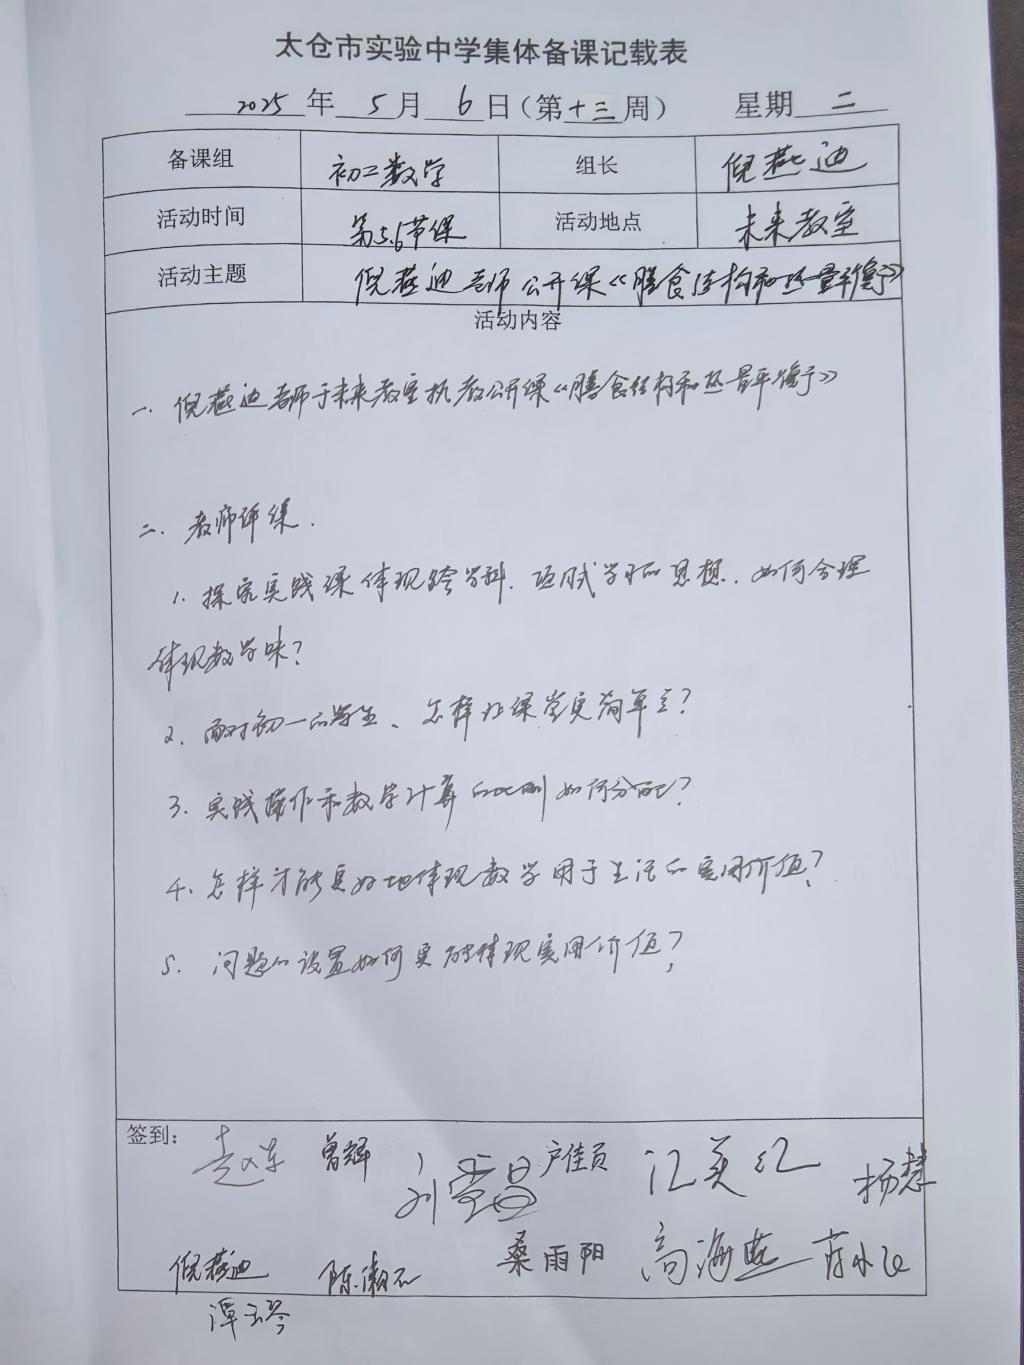 太仓市实验中学集体备课记载表
2025 年 5 月 6 日（第十三周） 星期 二
备课组 初二数学 组长 倪燕迪
活动时间 第5.6节课 活动地点 未来教室
活动主题 倪燕迪老师公开课《膳食结构和热量平衡》
活动内容
一. 倪燕迪老师于未来教室执教公开课《膳食结构和热量平衡》
二. 教师评课.
1. 探究实践课体现跨学科. 项目式学习的思想. 如何合理
体现数学味？
2. 面对初一的学生、怎样让课堂更简单？
3. 实践操作和数学计算的比例如何分配？
4. 怎样才能更好地体现数学用于生活的实用价值？
5. 问题的设置如何更能体现实用价值？
签到： 曾辉 刘雪昌 户佳员 江美红 杨慧
倪燕迪 桑雨阳 高海燕
谭玉琴